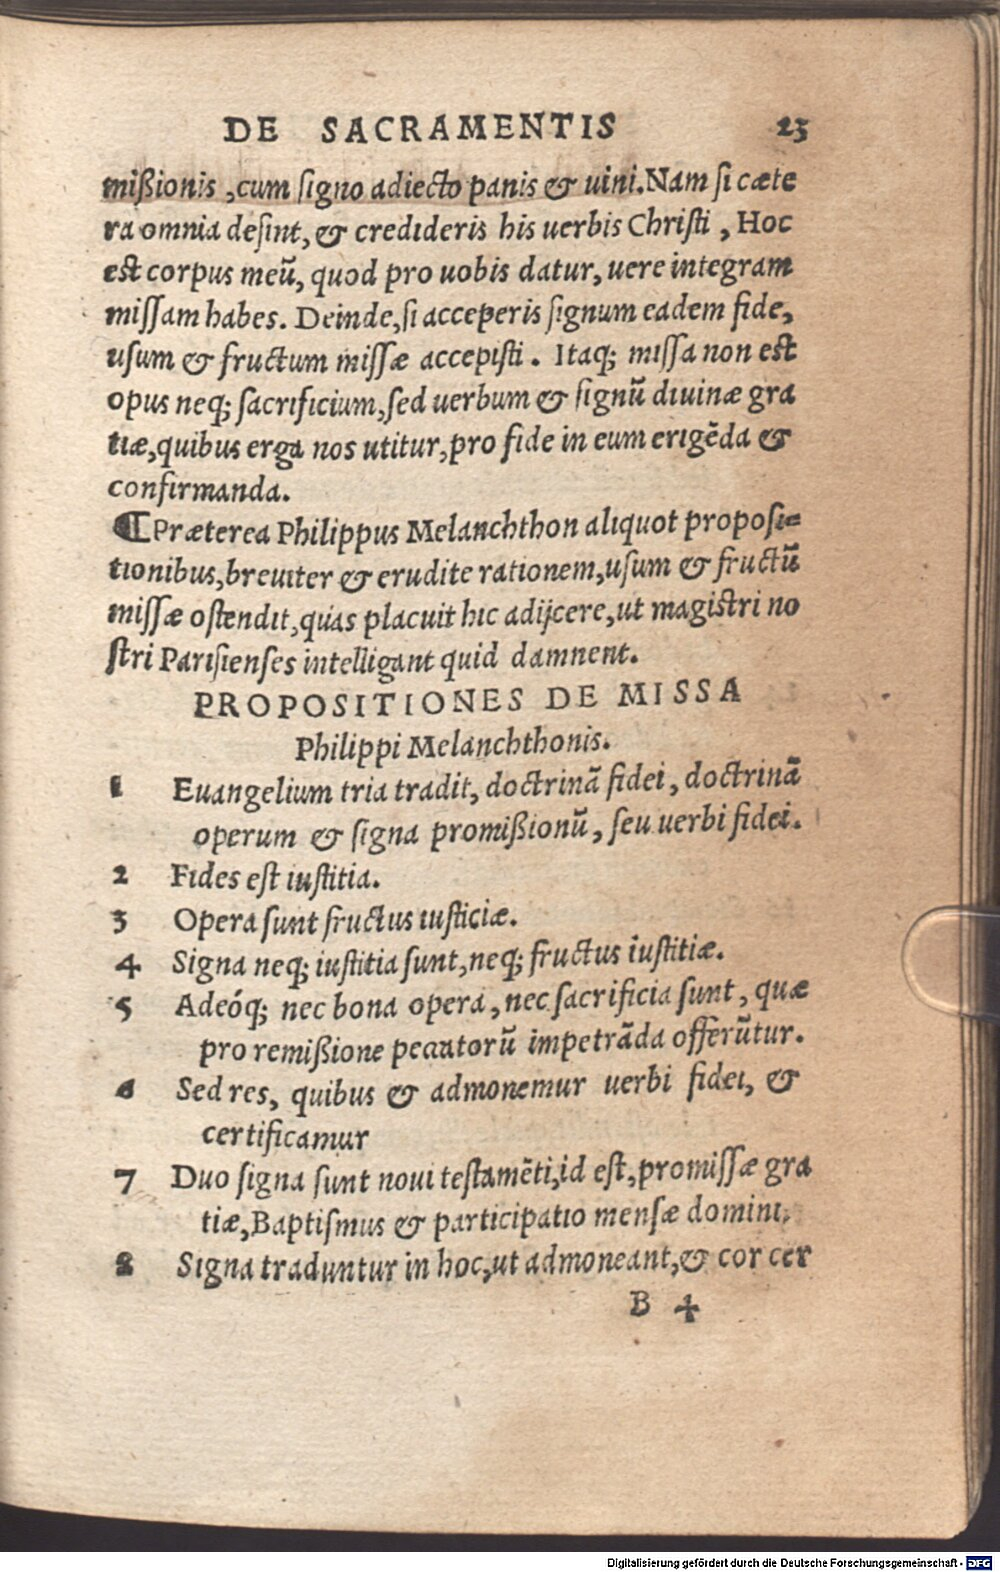 DE SACRAMENTIS 23
mißionis, cum ſigno adiecto panis & uini. Nam ſi cæte
ra omnia deſint, & credideris his uerbis Chriſti, Hoc
est corpus meũ, quod pro uobis datur, uere integram
miſſam habes. Deinde, ſi acceperis ſignum eadem fide,
uſum & fructum miſſæ accepiſti. Itaq; miſſa non est
opus neq; ſacrificium, ſed uerbum & ſignũ diuinæ gra
tiæ, quibus erga nos utitur, pro fide in eum erigẽda &
confirmanda.
¶ Præterea Philippus Melanchthon aliquot propoſi=
tionibus, breuiter & erudite rationem, uſum & fructũ
miſſæ oſtendit, quas placuit hic adijcere, ut magiſtri no
ſtri Pariſienſes intelligant quid damnent.
PROPOSITIONES DE MISSA
Philippi Melanchthonis.
1 Euangelium tria tradit, doctrinã fidei, doctrinã
operum & ſigna promißionũ, ſeu uerbi fidei.
2 Fides eſt iuſtitia.
3 Opera ſunt fructus iuſticiæ.
4 Signa neq; iuſtitia ſunt, neq; fructus iuſtitiæ.
5 Adeóq; nec bona opera, nec ſacrificia ſunt, quæ
pro remißione peccatorũ impetrãda offerũtur.
6 Sed res, quibus & admonemur uerbi fidei, &
certificamur
7 Duo ſigna ſunt noui teſtamẽti, id eſt, promiſſæ gra
tiæ, Baptiſmus & participatio menſæ domini.
8 Signa traduntur in hoc, ut admoneant, & cor cer
B 4
Digitalisierung gefördert durch die Deutsche Forschungsgemeinschaft - DFG